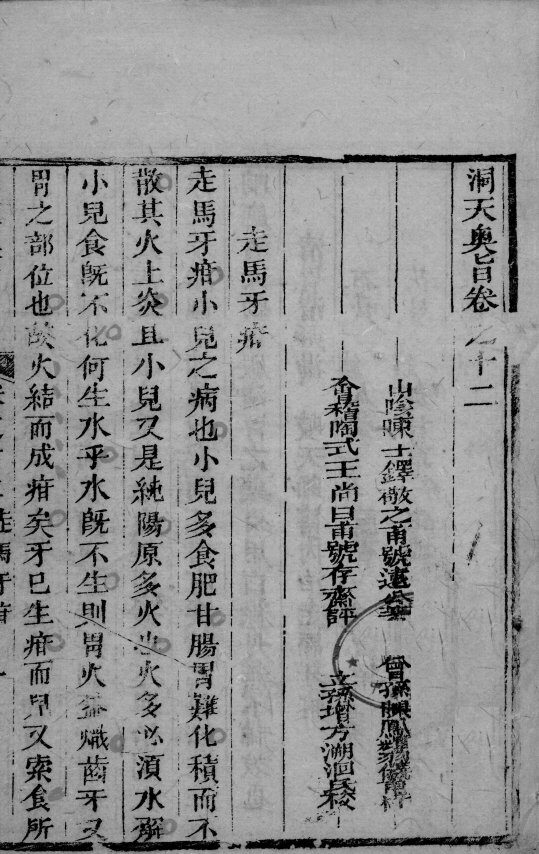 洞天奧旨卷之十二
山陰陳士鐸敬之甫號遠公
會稽陶式玉尚白甫號存齋評
走馬牙疳
走馬牙疳小兒之病也小兒多食肥甘腸胃難化積而不
散其火上炎且小兒又是純陽原多火也火多必須水解
小兒食既不化何生水乎水既不生則胃火益熾齒牙又
胃之部位也故火結而成疳矣牙已生疳而兒又索食所
走馬牙疳